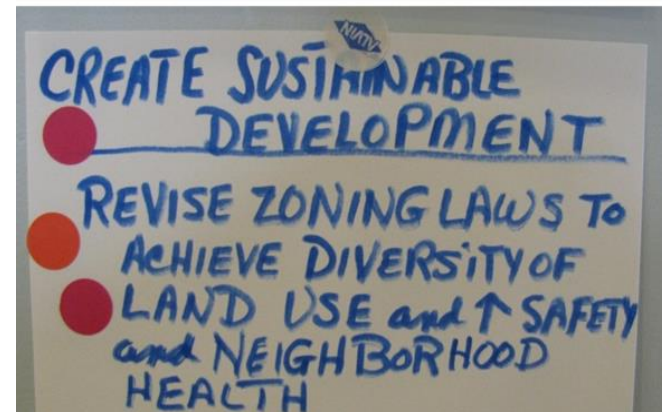 CREATE SUSTAINABLE
DEVELOPMENT
REVISE ZONING LAWS TO
ACHIEVE DIVERSITY OF
LAND USE and ↑ SAFETY
and NEIGHBORHOOD
HEALTH